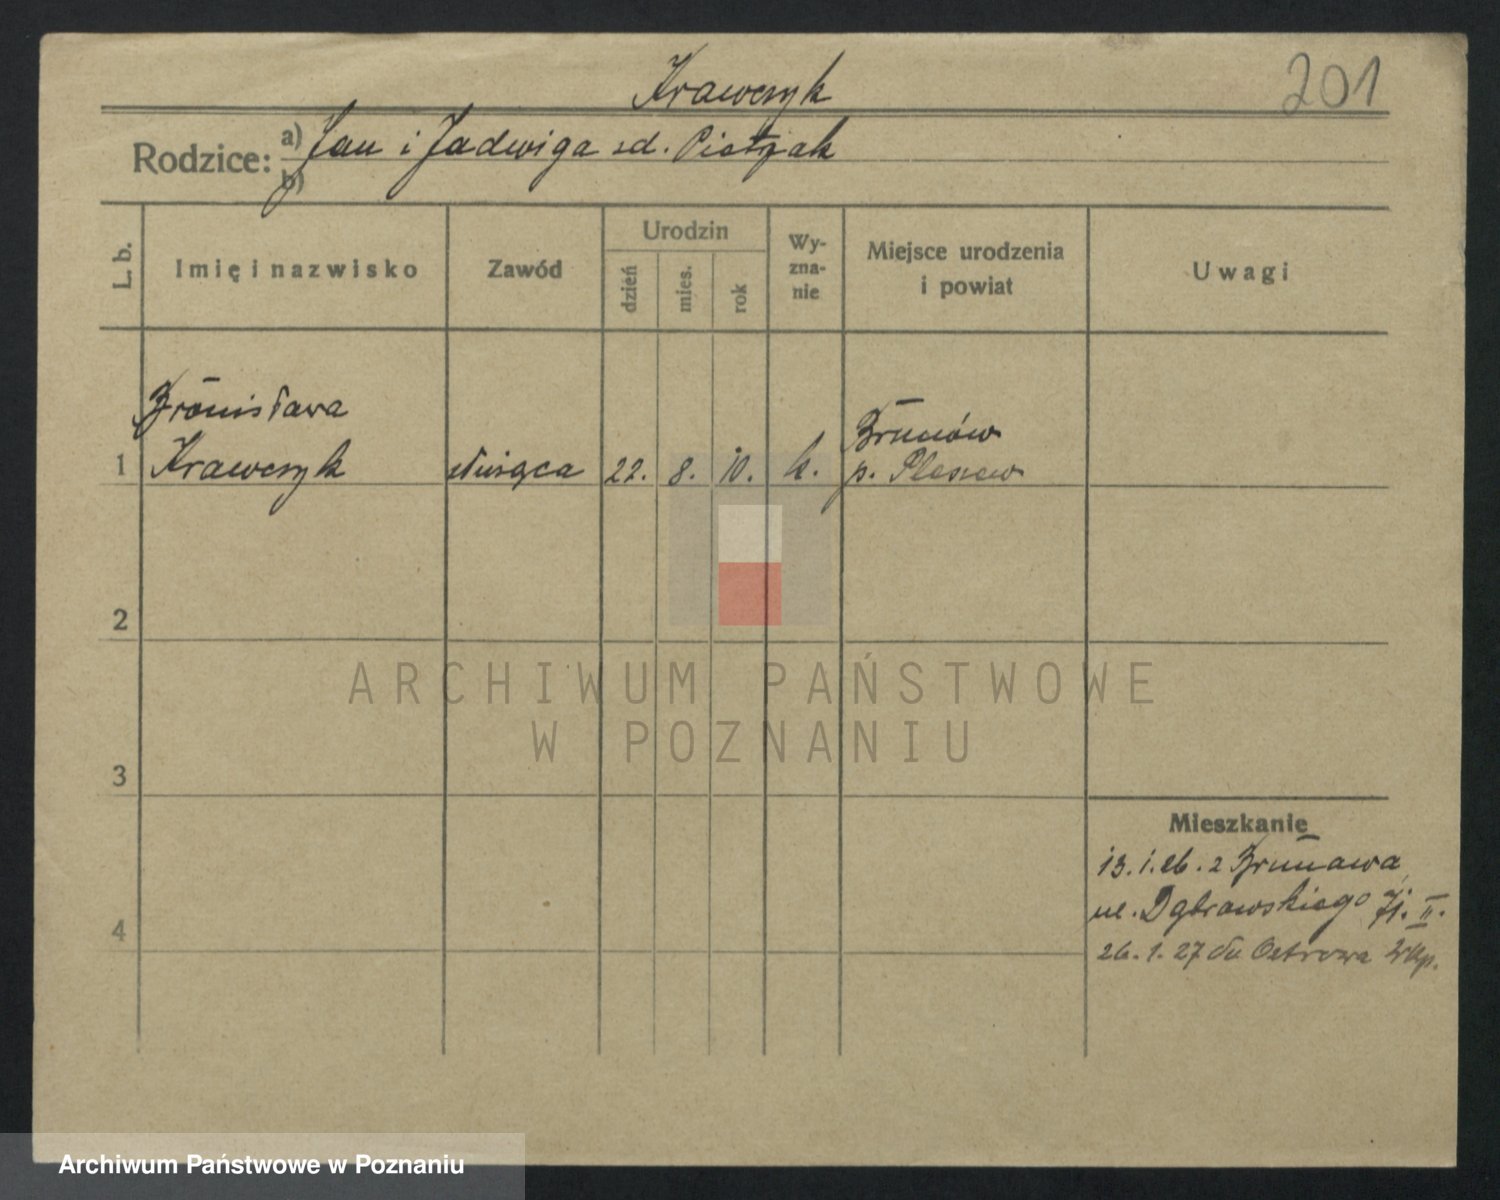 201
Krawczyk
Rodzice: a) Jan i Jadwiga zd. Pietrzak
b)
L. b.
Imię i nazwisko
Zawód
Urodzin
dzień
mies.
rok
Wy-
zna-
nie
Miejsce urodzenia
i powiat
Uwagi
Bronisława
1 Krawczyk służąca 22. 8. 10. k. Brunów
p. Pleszew
2
3
4
Mieszkanie
13. 1. 26. z Brunowa
ul. Dąbrowskiego 71. II.
26. 1. 27 do Ostrowa Wlkp.
ARCHIWUM PAŃSTWOWE
W POZNANIU
Archiwum Państwowe w Poznaniu